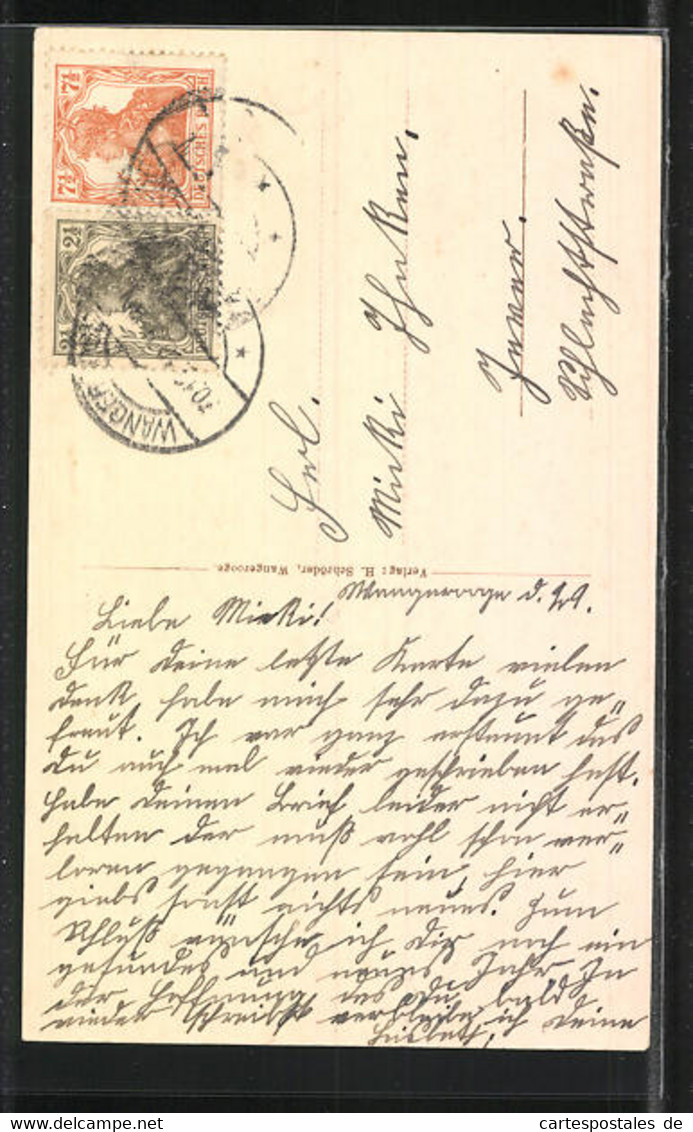 7½ 7½
DEUTSCHES REICH
2½ 2½
WANGEROOGE
Frl.
Mieki Ihnken.
Jever.
Schlachtstraße.
Verlag: H. Schröder, Wangerooge.
Wangerooge d.
Liebe Mieki!
Für Deine letzte Karte vielen
Dank, habe mich sehr dazu ge-
freut. Ich war ganz erstaunt das
Du auch mal wieder geschrieben hast.
Habe Deinen Brief leider nicht er-
halten der muß wohl schon ver-
loren gegangen sein, hier
giebs sonst nichts neues. Zum
Schluß wünsche ich Dir noch ein
gesundes und neues Jahr In
der Hoffnung das Du bald
wieder schreibst verbleibe ich Deine
www.delcampe.net
cartespostales de